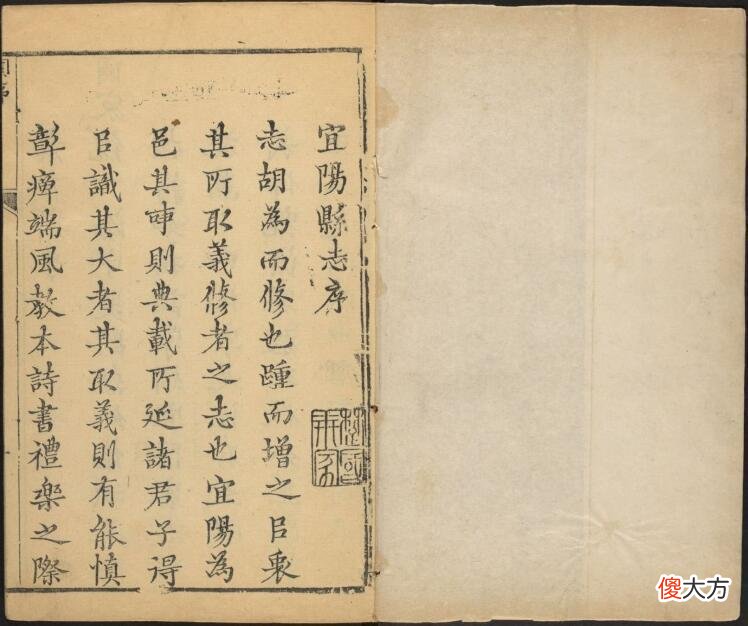 宜陽縣志序
志胡為而修也踵而增之㠯衷
其所取義修者之志也宜陽為
邑其時則典載所延諸君子得
㠯識其大者其取義則有能慎
彰瘅端風教本詩書禮樂之際
傻大方